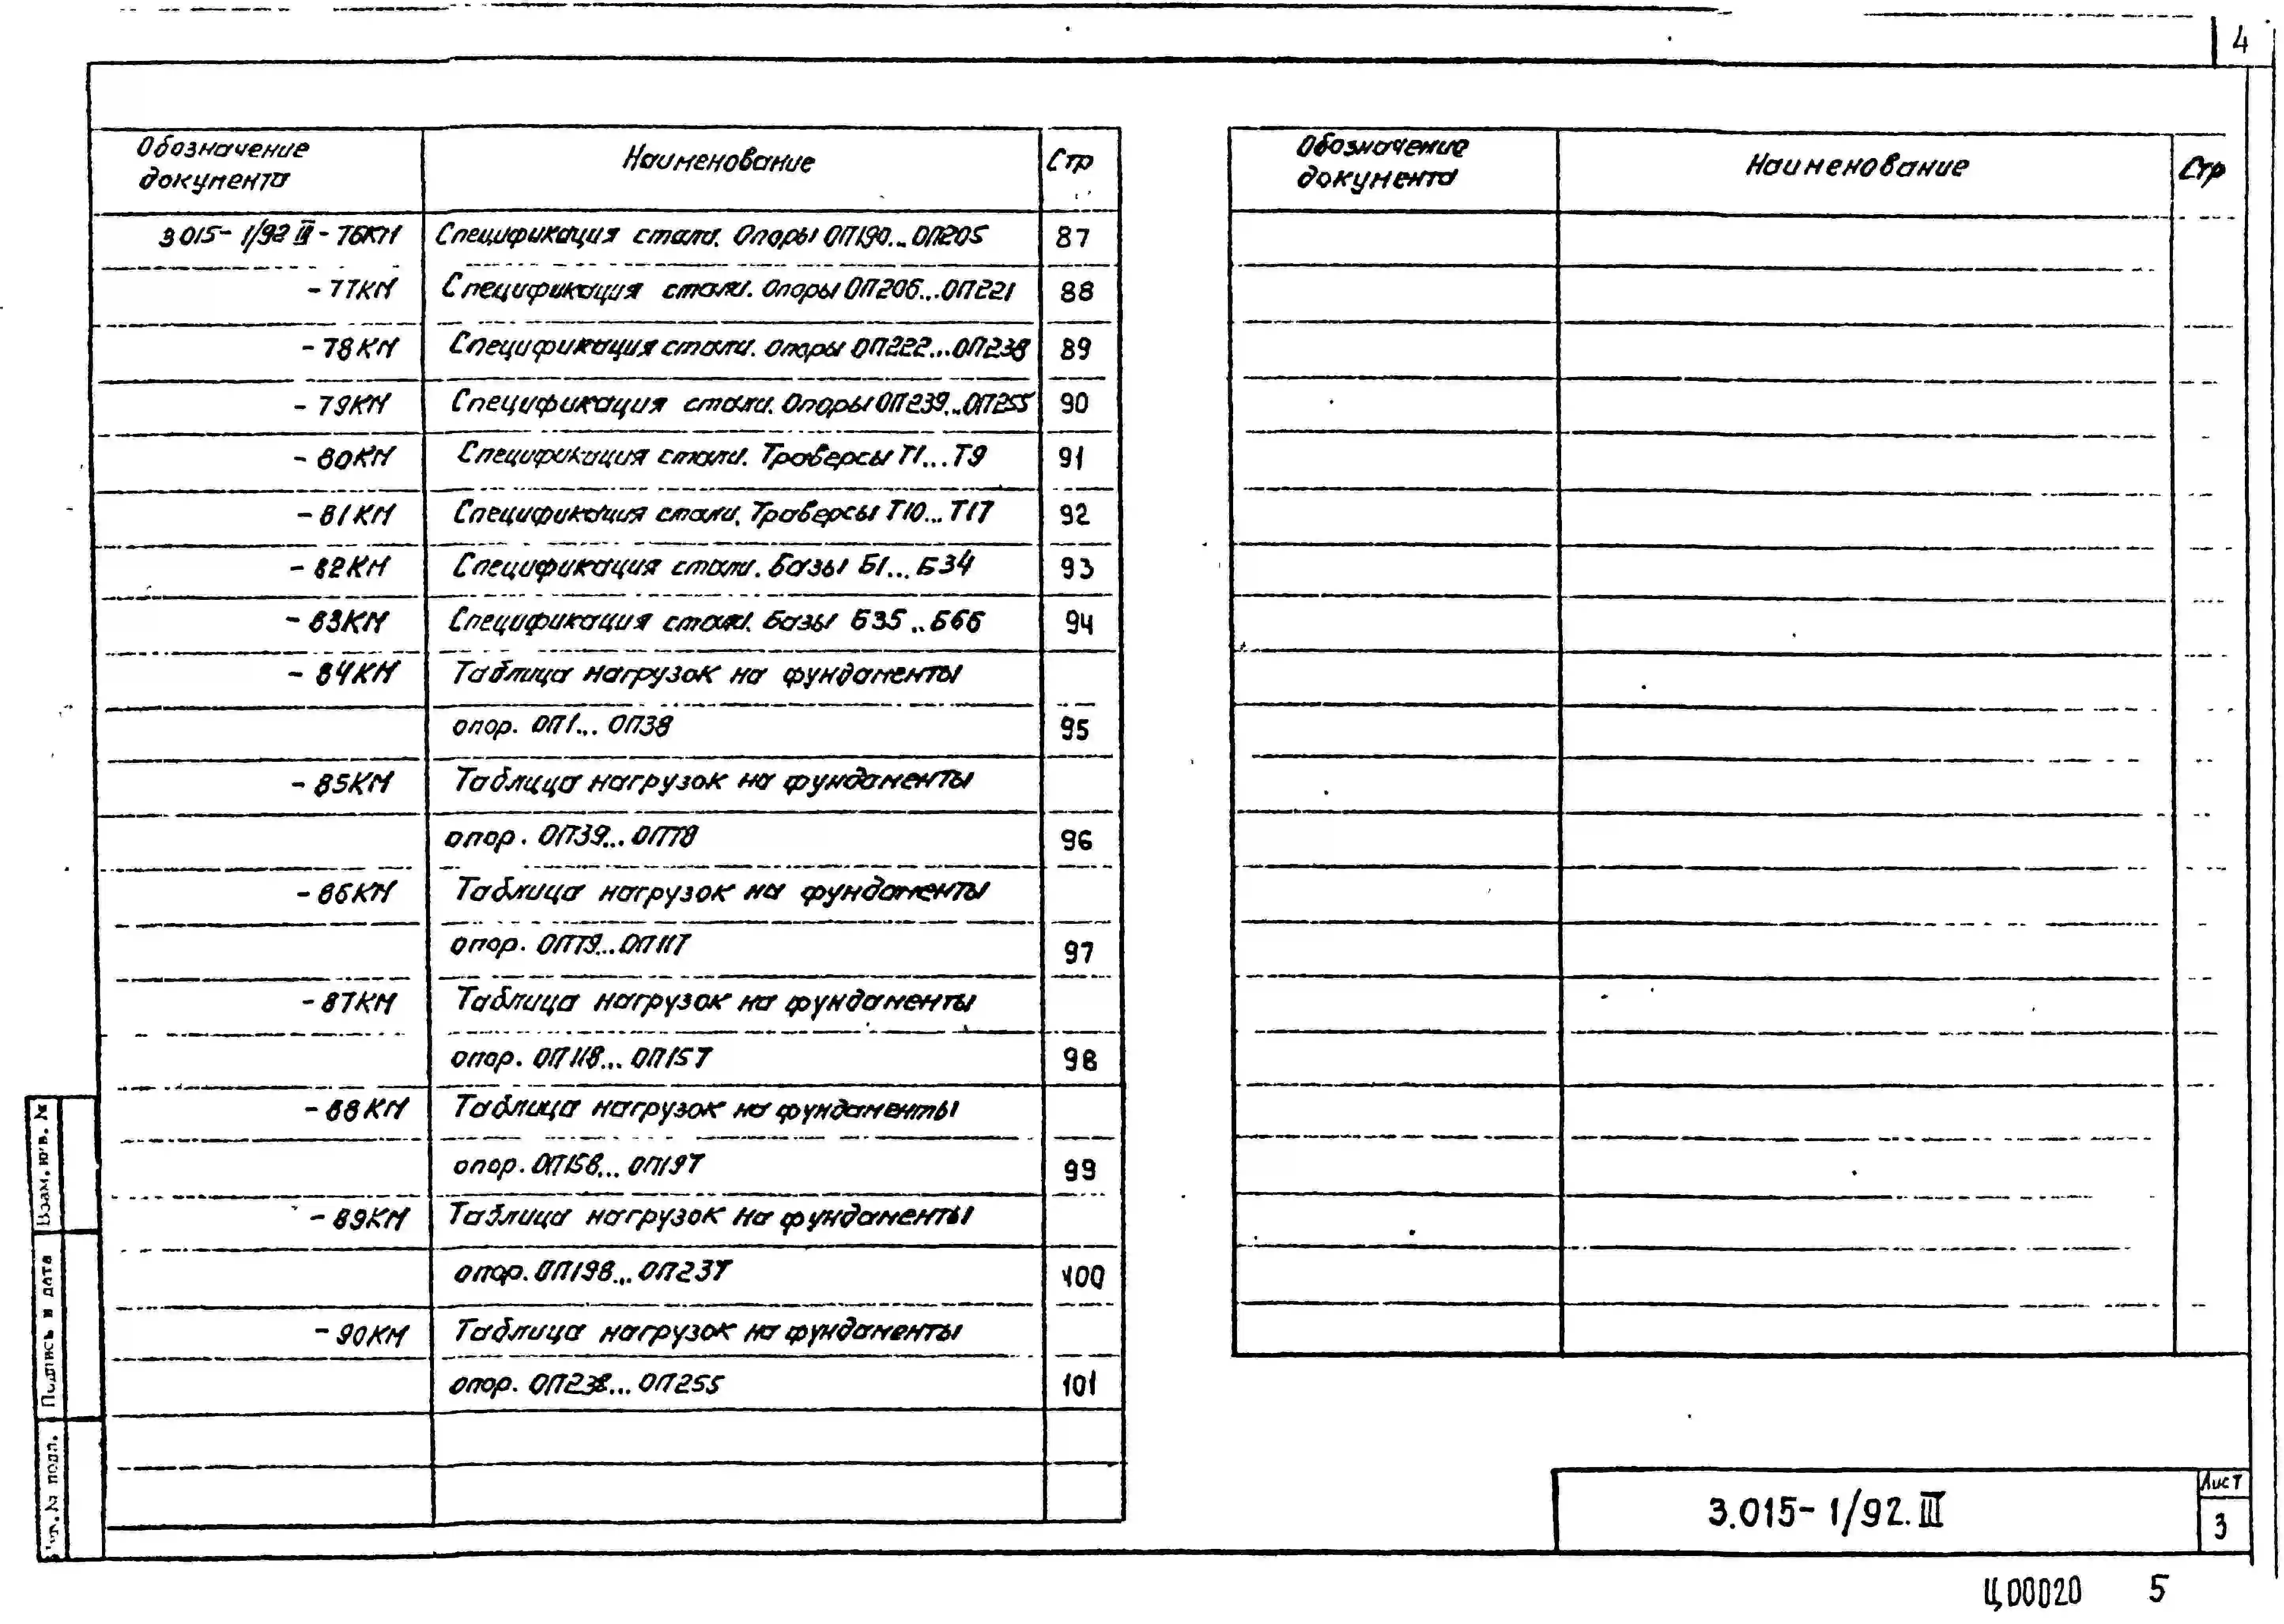 4
Обозначение документа Наименование Стр
3.015-1/92 III-76КМ Спецификация стали. Опоры ОП190...ОП205 87
-77КМ Спецификация стали. Опоры ОП206...ОП221 88
-78КМ Спецификация стали. Опоры ОП222...ОП238 89
-79КМ Спецификация стали. Опоры ОП239...ОП255 90
-80КМ Спецификация стали. Траверсы Т1...Т9 91
-81КМ Спецификация стали. Траверсы Т10...Т17 92
-82КМ Спецификация стали. Базы Б1...Б34 93
-83КМ Спецификация стали. Базы Б35..Б66 94
-84КМ Таблица нагрузок на фундаменты
опор. ОП1... ОП38 95
-85КМ Таблица нагрузок на фундаменты
опор. ОП39...ОП78 96
-86КМ Таблица нагрузок на фундаменты
опор. ОП79...ОП117 97
-87КМ Таблица нагрузок на фундаменты
опор. ОП118... ОП157 98
-88КМ Таблица нагрузок на фундаменты
опор. ОП158... ОП197 99
-89КМ Таблица нагрузок на фундаменты
опор. ОП198... ОП237 100
-90КМ Таблица нагрузок на фундаменты
опор. ОП238... ОП255 101
Обозначение документа Наименование Стр
Взам. инв. №
Подпись и дата
№ подл.
3.015-1/92.III
Лист
3
Ц00020 5